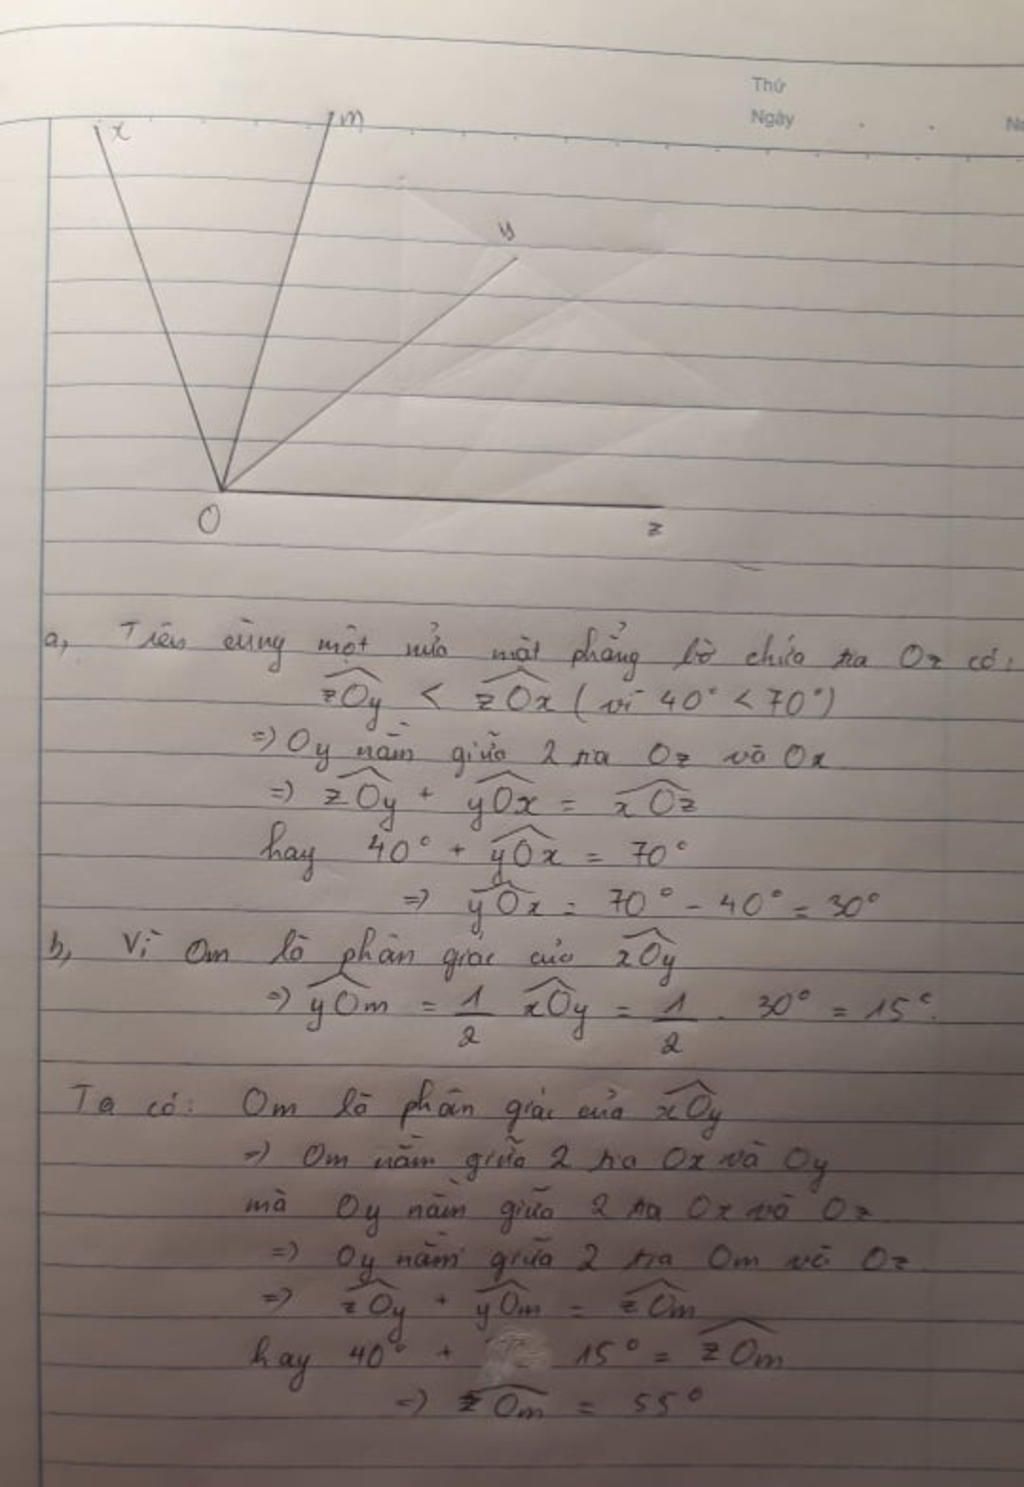 Thứ
Ngày
x
m
y
O
z
a, Trên cùng một nửa mặt phẳng bờ chứa tia Oz có:
zOy < zOx ( vì 40° < 70°)
=) Oy nằm giữa 2 tia Oz và Ox
=) zOy + yOx = xOz
hay 40° + yOx = 70°
=) yOx = 70° - 40° = 30°
b, Vì Om là phân giác của xOy
=) yOm = 1/2 xOy = 1/2 . 30° = 15°.
Ta có: Om là phân giác của xOy
=) Om nằm giữa 2 tia Ox và Oy
mà Oy nằm giữa 2 tia Ox và Oz
=) Oy nằm giữa 2 tia Om và Oz
=) zOy + yOm = zOm
hay 40° + 15° = zOm
=) zOm = 55°